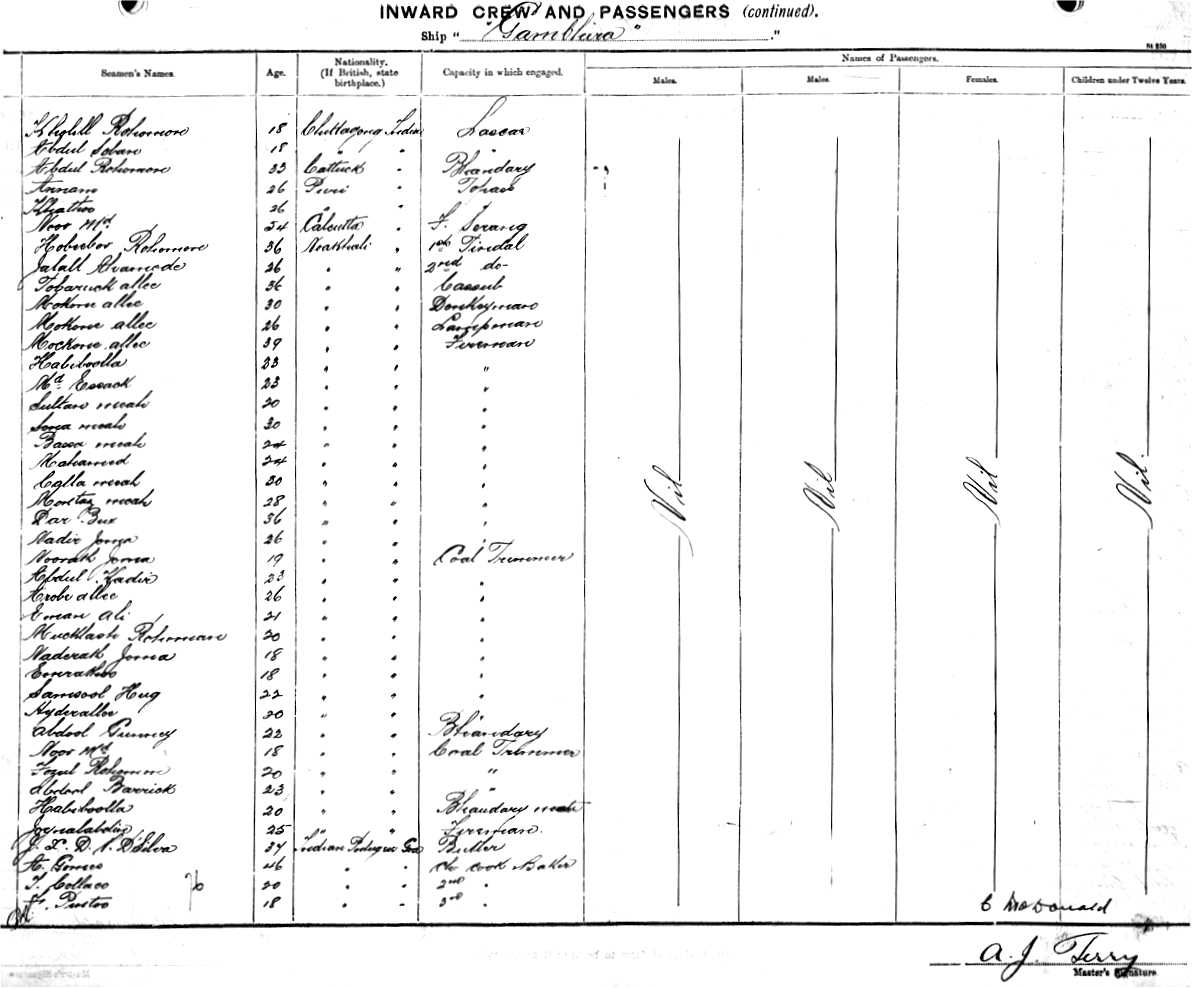 INWARD CREW AND PASSENGERS (continued).
Ship "Gambhira"
Seamen's Names. Age. Nationality. (If British, state birthplace.) Capacity in which engaged. Names of Passengers.
Males. Males. Females. Children under Twelve Years.
Rohomon 18 Chittagong India Lascar
Abdul Soban 18 " "
Abdul Rohomon 33 Cattuck " Bhandary
Annam 26 Puri "
26 " "
Noor Md. 54 Calcutta " F. Serang
Rohomon 36 Noakhali " 1st Tindal
Jalall 26 " " 2nd do-
Tobaruck allee 36 " " Cassub
Mokone allee 30 " " Donkeyman
Mokone allee 26 " " Lampman
Mockone allee 39 " " Fireman
Habiboolla 23 " " "
Md. Essack 23 " " "
Sultan meah 20 " " "
Sona meah 30 " " "
Bassa meah 24 " " "
Mahamed 24 " " "
Colla meah 30 " " "
Montaz meah 28 " " "
Dar Bux 36 " " "
Nadir Joma 26 " " "
Noorah Joma 19 " " Coal Trimmer
Abdul Kadir 23 " " "
Arobe allee 26 " " "
Eman Ali 21 " " "
Rohoman 20 " " "
Naderah Joma 18 " " "
18 " " "
Samsool Huq 22 " " "
Hyderallee 20 " " "
Abdool Gunney 22 " " Bhandary
Noor Md. 18 " " Coal Trimmer
Fozul Rohomon 20 " " "
Abdool Barrick 23 " " "
Habiboolla 20 " " Bhandary mate
Joynalabdin 25 " " Fireman.
D'Silva 37 Indian Goa Butler
A. Gomes 46 " " Cook Baker
T. Collaco 20 " " 2nd "
18 " " 3rd "
Nil Nil Nil Nil.
C McDonald
A. J. Terry
Master's Signature.